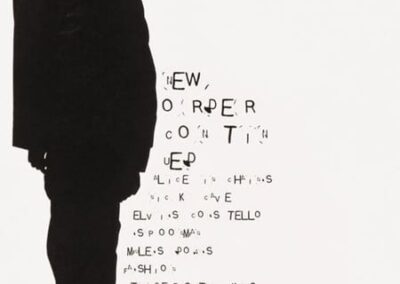 NEW
ORDER
CONTIN
UED
ALICE IN CHAINS
NICK CAVE
ELVIS COSTELLO
SPOOMAN
FASHION